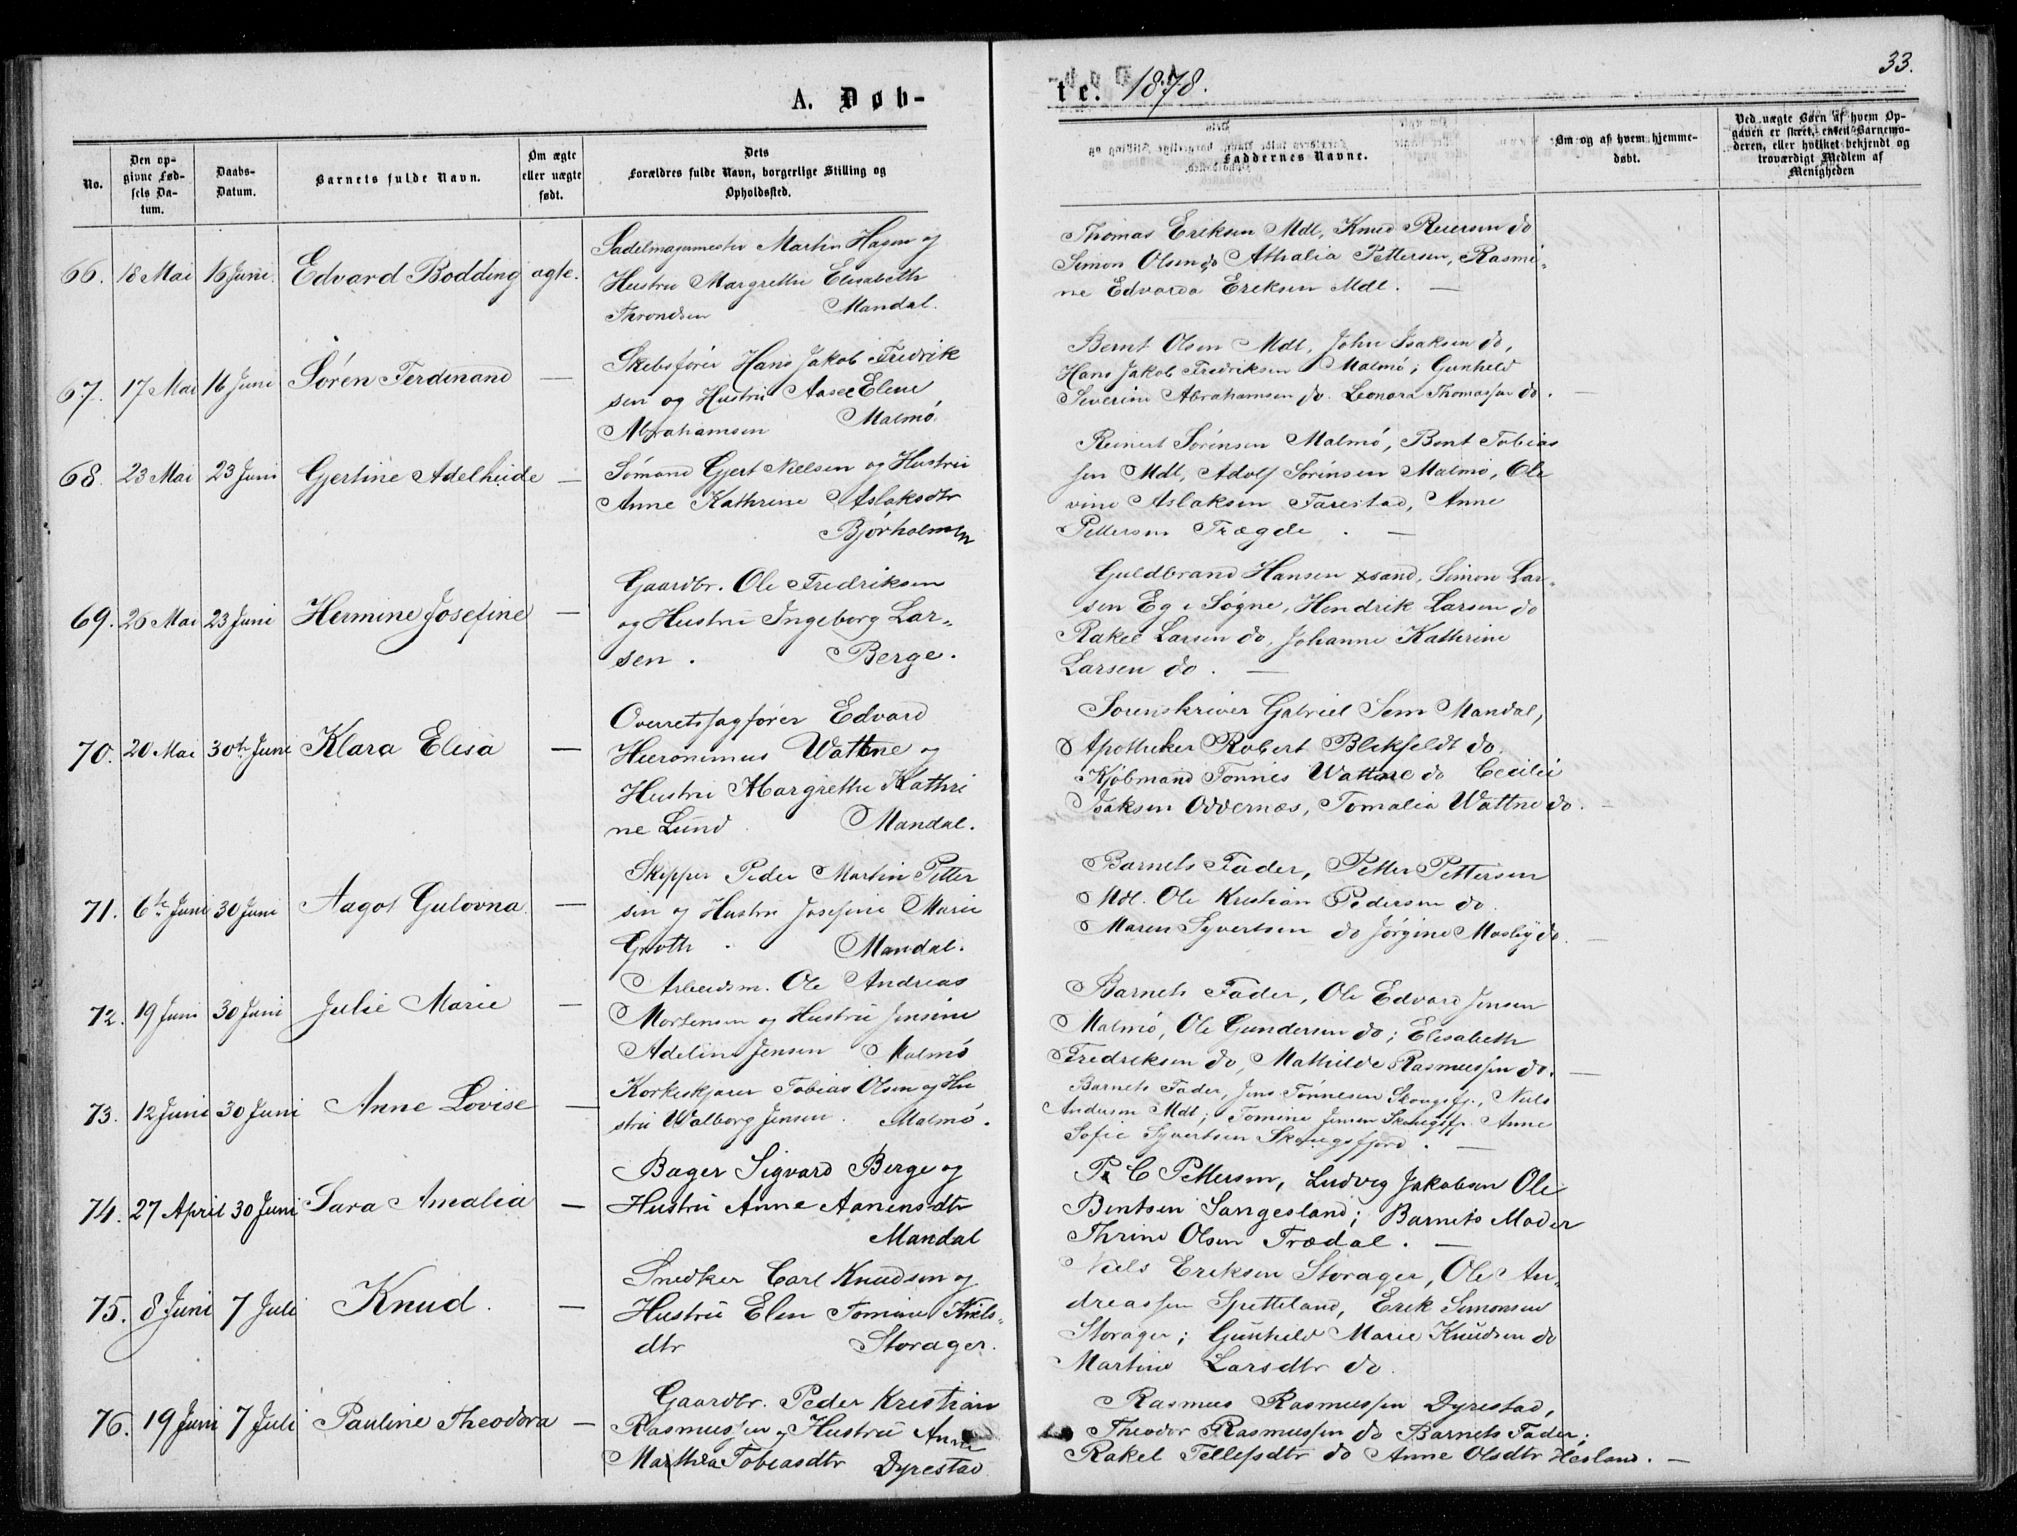 33.
A. Døb-
te. 1878.
No.
Den op-
givne Fød-
sels Da-
tum.
Daabs-
Datum.
Barnets fulde Navn.
Om ægte
eller uægte
født.
Dets
Forældres fulde Navn, borgerlige Stilling og
Opholdssted.
Faddernes Navne.
Om og af hvem hjemme-
døbt.
Ved uægte Børn af hvem Op-
gaven er skeet, enten Barnemo-
deren, eller hvilket bekjendt og
troværdigt Medlem af
Menigheden
66. 18 Mai 16 Juni. Edvard Bodding ægte.
Sadelmagermester Martin Hagen og
Hustru Margrethe Elisabeth
Throndsen Mandal.
Thomas Eriksen Mdl, Knud Reiersen do
Simon Olsen do Athalia Pettersen, Rasmi-
ne Edvarda Eriksen Mdl. —
67. 17 Mai 16 Juni Søren Ferdinand —
Skibsfører Hans Jakob Fredrik
sen og Hustru Aasel Elene
Abrahamsen Malmø.
Bernt Olsen Mdl, John Isaksen do,
Hans Jakob Fredriksen Malmø; Gunhild
Severine Abrahamsen do. Leonora Thomassen do. —
68. 23 Mai 23 Juni Gjertine Adelheide —
Sømand Gjert Nielsen og Hustru
Anne Kathrine Aslaksdtr
Bjørholmen
Reinert Sørensen Malmø, Bent Tobias
sen Mdl, Adolf Sørensen Malmø, Ole
vine Aslaksen Farestad, Anne
Pettersen Trægde. —
69. 25 Mai 23 Juni Hermine Josefine —
Gaardbr. Ole Fredriksen
og Hustru Ingeborg Lar-
sen. Berge.
Guldbrand Hansen xsand, Simon Lar-
sen Eg i Søgne, Hendrik Larsen do
Rakel Larsen do, Johanne Kathrine
Larsen do. —
70. 20 Mai 30te Juni Klara Elisa —
Overretssagfører Edvard
Hieronimus Wattne og
Hustru Margrethe Kathri
ne Lund Mandal.
Sorenskriver Gabriel Sem Mandal,
Apotheker Robert Blikfeldt do.
Kjøbmand Tønnes Wattne do Cecilie
Isaksen Oddernæs, Tomalia Wattne do. —
71. 6te Juni 30 Juni Aagot Gulovna. —
Skipper Peder Martin Petter
sen og Hustru Josefine Marie
Groth. Mandal.
Barnets Fader, Petter Pettersen
Mdl. Ole Kristian Pedersen do.
Maren Syvertsen do Jørgine Mosby do. —
72. 19 Juni 30 Juni Julie Marie —
Arbeidsm. Ole Andreas
Mortensen og Hustru Jensine
Adeline Jensen Malmø
Barnets Fader, Ole Edvard Jensen
Malmø, Ole Gundersen do; Elisabeth
Fredriksen do, Mathilde Rasmussen do. —
73. 12 Juni 30 Juni Anne Lovise —
Korkeskjærer Tobias Olsen og Hu
stru Walborg Jensen. Malmø.
Barnets Fader, Jens Tønnesen Skougsfj., Niels
Andersen Mdl; Tomine Jensen Skougsfj. Anne
Sofie Syvertsen Skougsfjord. —
74. 27 April 30 Juni Sara Amalia —
Bager Sigvard Berge og
Hustru Anne Aanensdtr
Mandal
P. C Pettersen, Ludvig Jakobsen Ole
Bentsen Sangesland; Barnets Moder
Thrine Olsen Trædal. —
75. 8 Juni 7 Juli Knud. —
Snedker Carl Knudsen og
Hustru Elen Tomine Niels-
dtr Storager.
Niels Eriksen Storager, Ole An-
dreassen Spetteland, Erik Simonsen
Storager; Gunhild Marie Knudsen do
Martine Larsdtr do.
76. 19 Juni 7 Juli Pauline Theodora —
Gaardbr. Peder Kristian
Rasmussen og Hustru Anne
Marthea Tobiasdtr Dyrestad
Rasmus Rasmussen Dyrestad,
Theodor Rasmussen do Barnets Fader;
Rakel Tellefsdtr do Anne Olsdtr Hesland. —